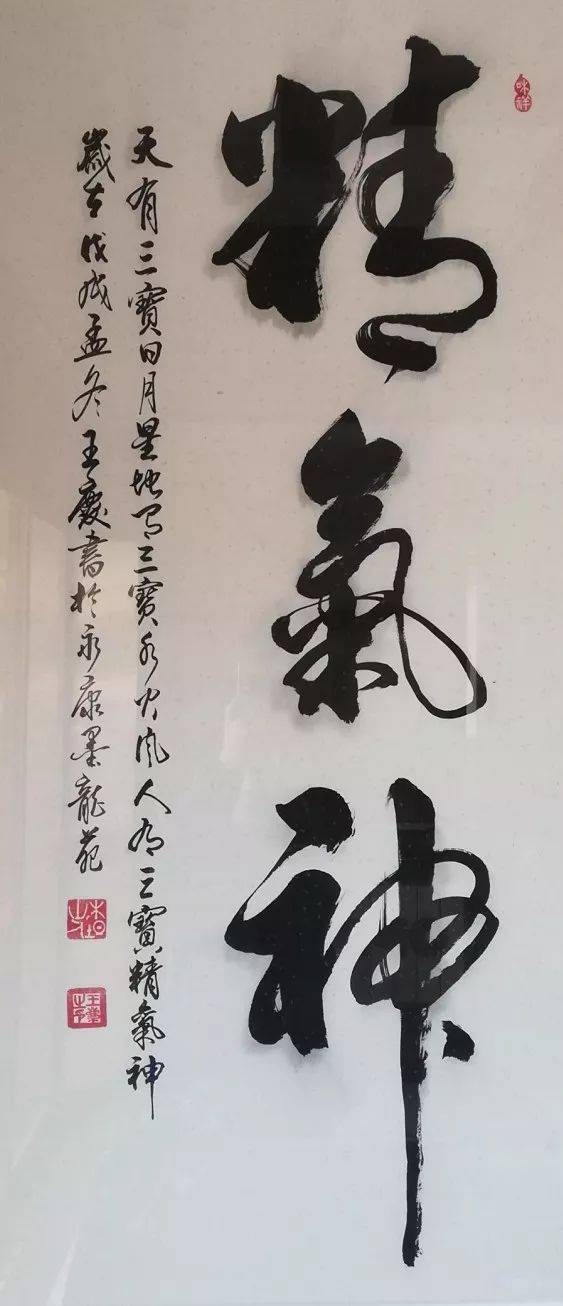 精氣神
天有三寶日月星地有三寶水火風人有三寶精氣神
歲在戊戌孟冬王慶書於永康墨龍苑